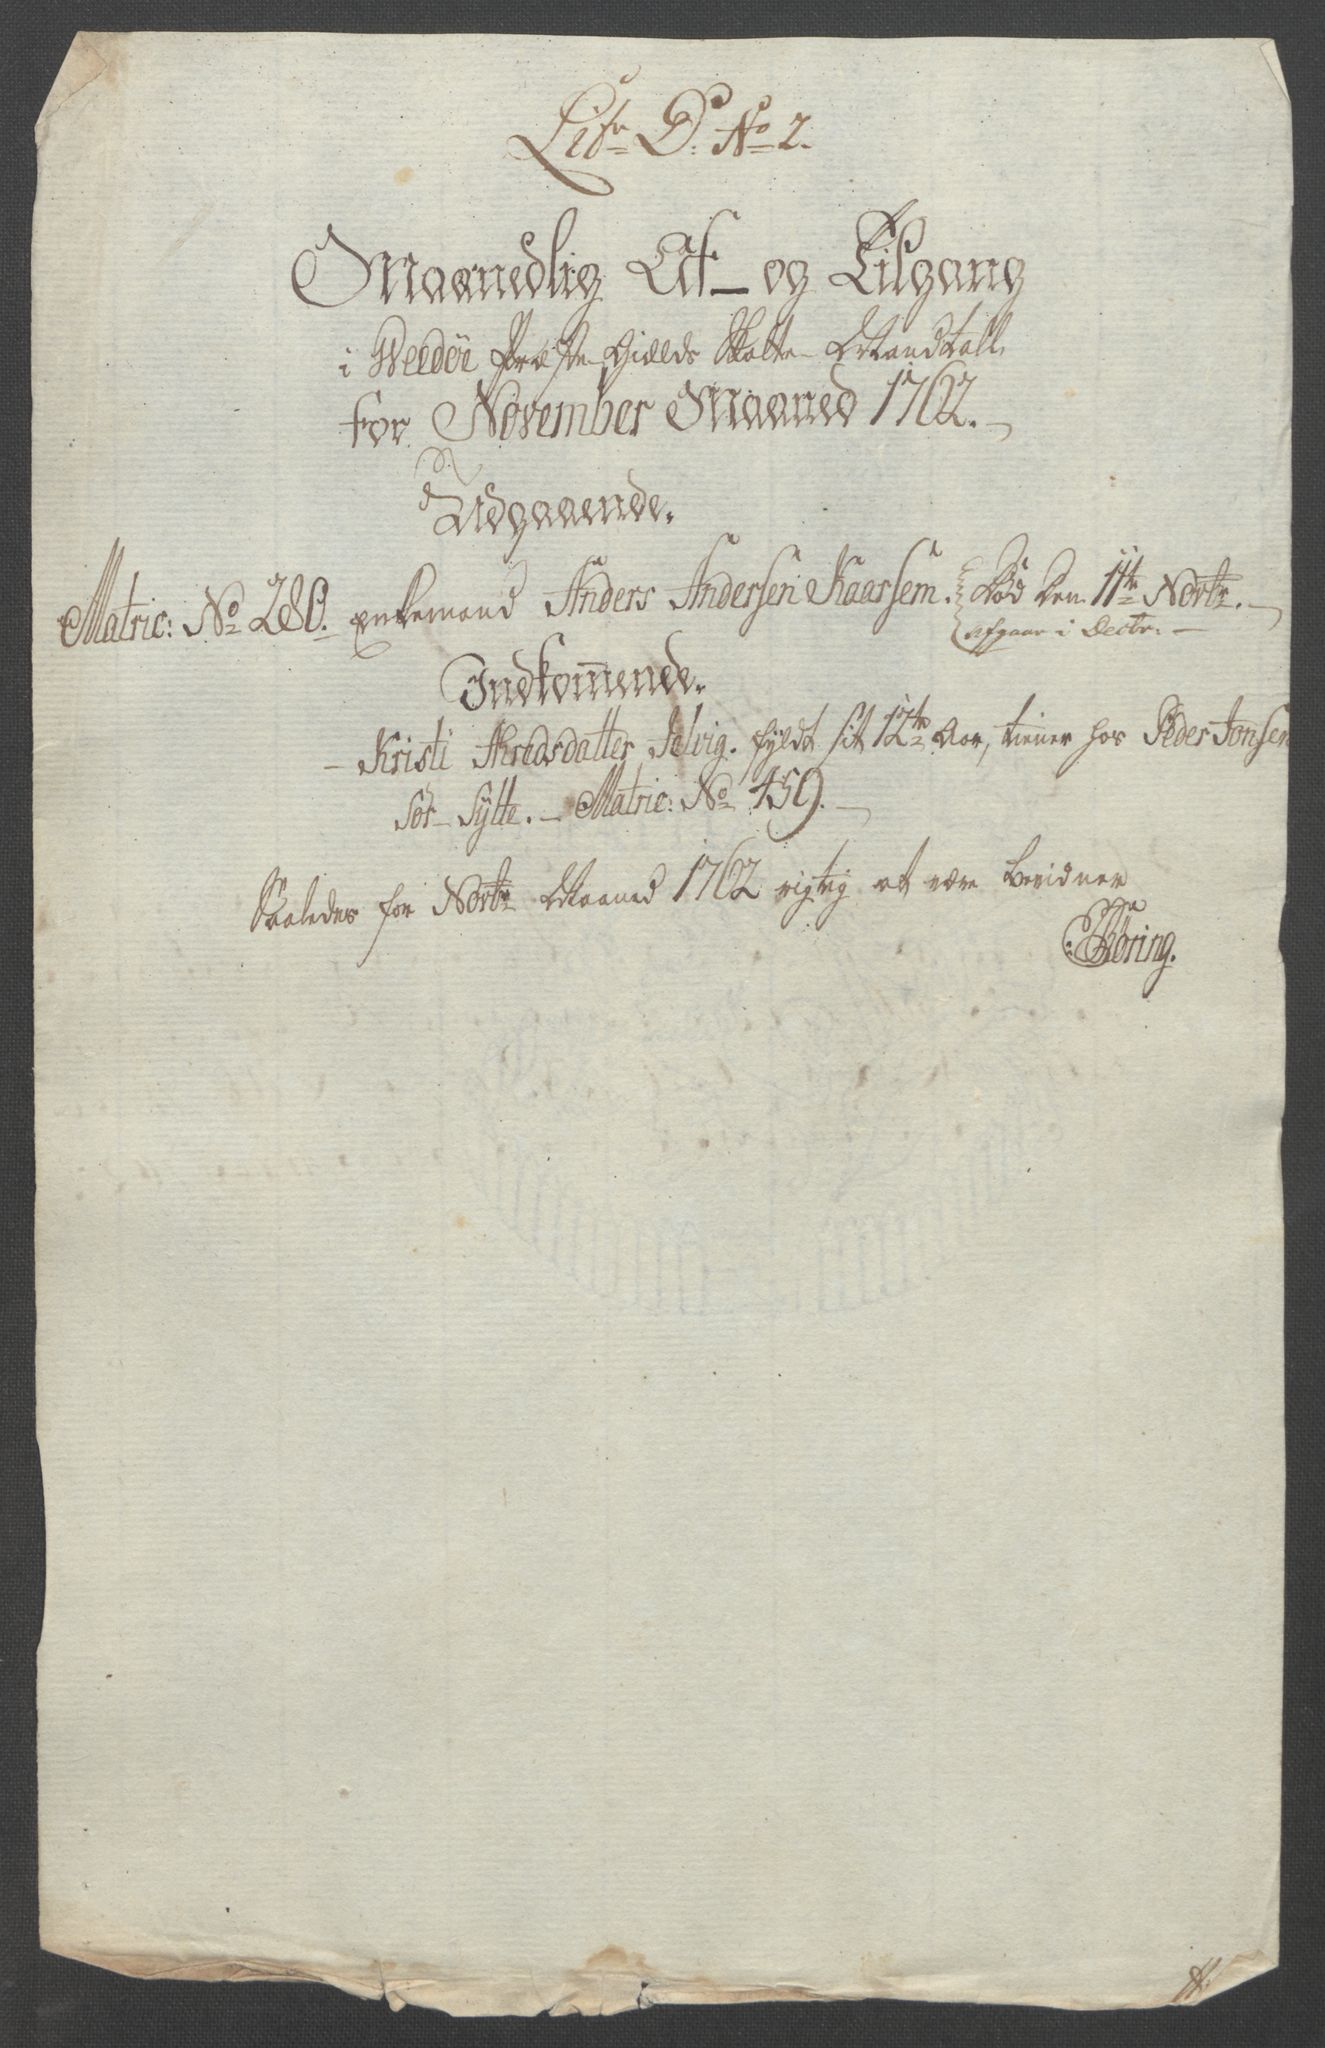 Litr D: No 2.
Maanedlig Af- og Tilgang
i Wedöe Præste-Gields Skatte-Mandtall
for November Maaned 1762.
Udgaaende.
Matric: No 280. enkemand Anders Andersen Kaarsem. Död den 11te Novbr.
afgaar i Decbr:
Indkom̄ende.
- Kristi Jfredsdatter Jelvig. fyldt sit 12te Aar, tiener hos Peder Jonsen
Sör-Sylte. - Matric: No 459.
Saaledes for Novbr Maaned 1762 rigtig at være bevidner
Thöring.